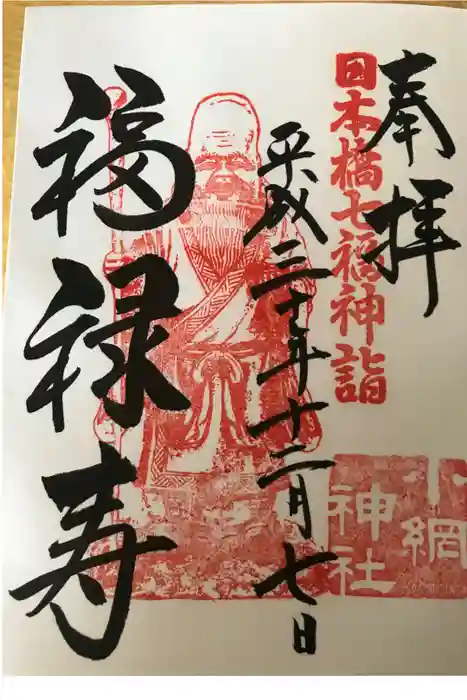 奉拝
日本橋七福神詣
小網
神社
平成三十年十二月七日
福禄寿